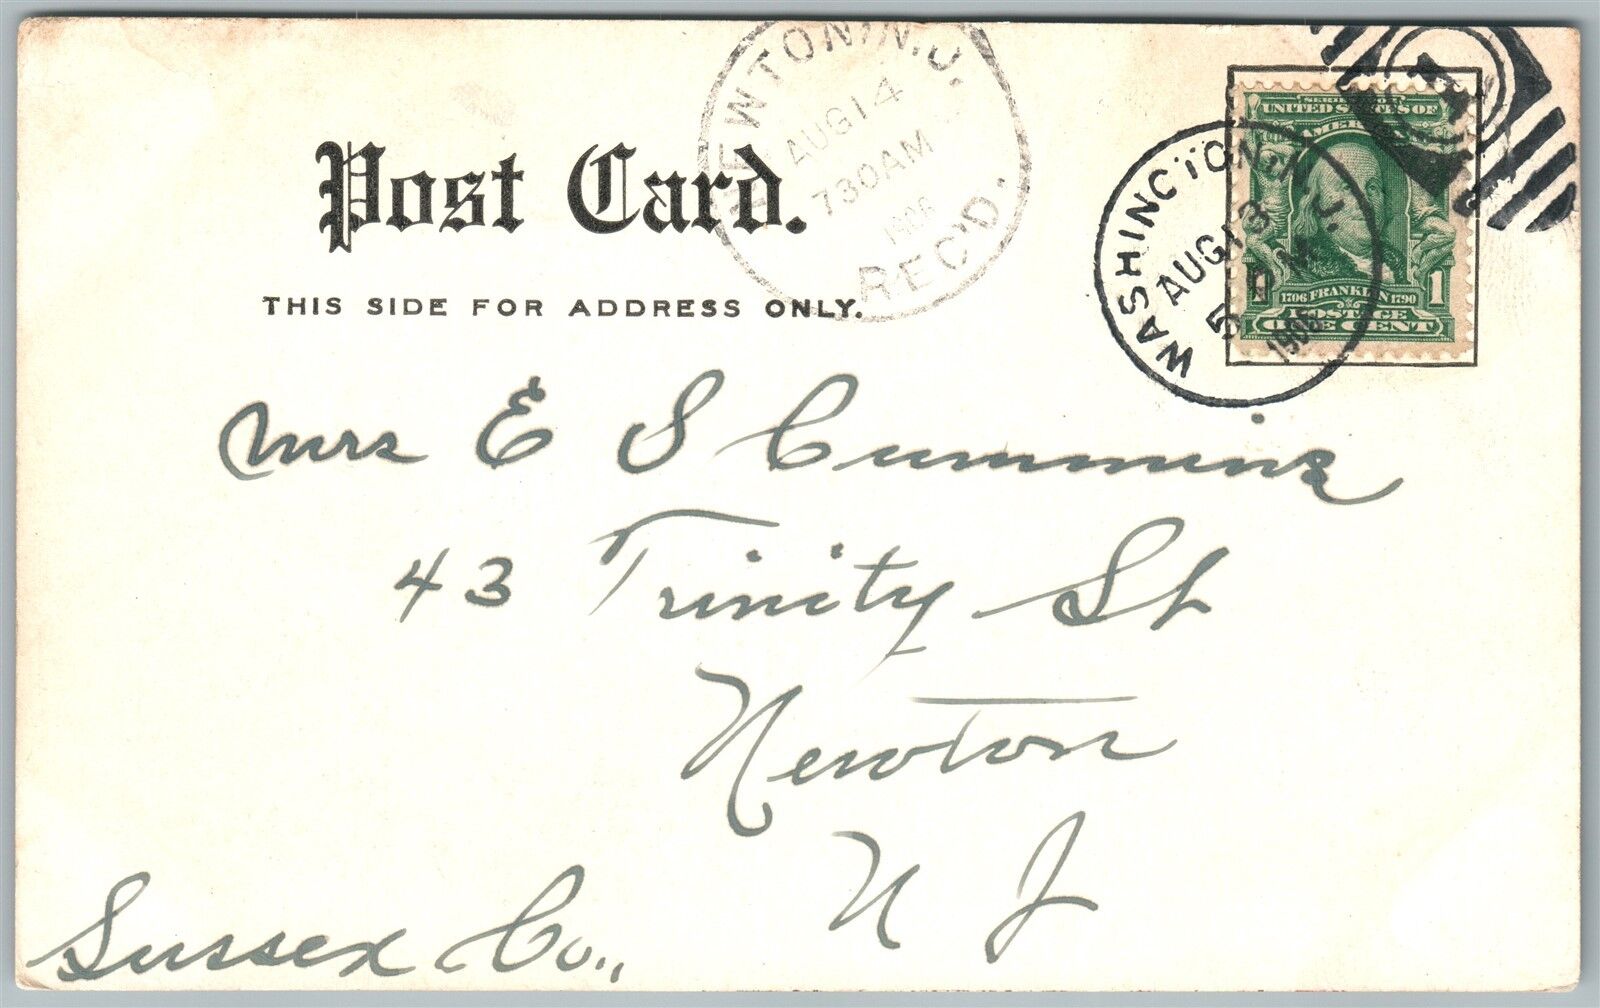 NEWTON, N.J.
AUG 14
730AM
1906
REC'D.
Post Card.
THIS SIDE FOR ADDRESS ONLY.
WASHINGTON, N.J.
AUG 13
5 M
SERIES OF 1902
UNITED STATES OF
AMERICA
1 1
1706 FRANKLIN 1790
POSTAGE
ONE CENT
Mrs E S Cummins
43 Trinity St
Newton
N J
Sussex Co.,